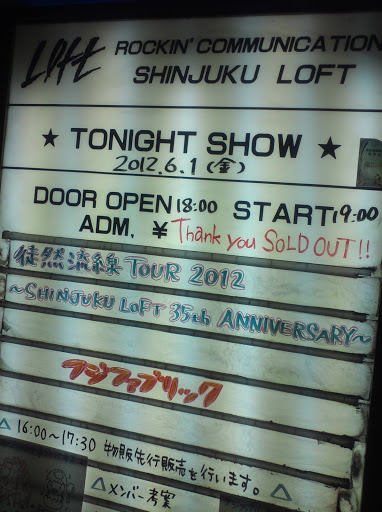 Loft ROCKIN' COMMUNICATION
SHINJUKU LOFT
★ TONIGHT SHOW ★
2012.6.1(金)
DOOR OPEN 18:00 START 19:00
ADM, ¥ Thank you SOLD OUT!!
徒然流線 TOUR 2012
~SHINJUKU LOFT 35th ANNIVERSARY~
フジファブリック
△ 16:00~17:30 物販先行販売を行います。
△メンバー考案 △